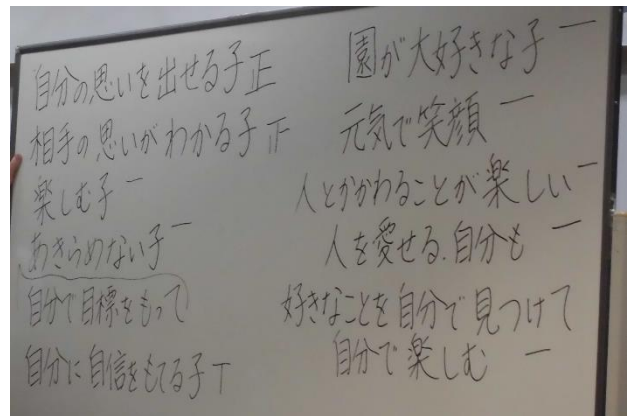 自分の思いを出せる子 正
相手の思いがわかる子 正
楽しむ子 一
あきらめない子 一
自分で目標をもって
自分に自信をもてる子 T
園が大好きな子 一
元気で笑顔 一
人とかかわることが楽しい 一
人を愛せる.自分も 一
好きなことを自分で見つけて
自分で楽しむ 一